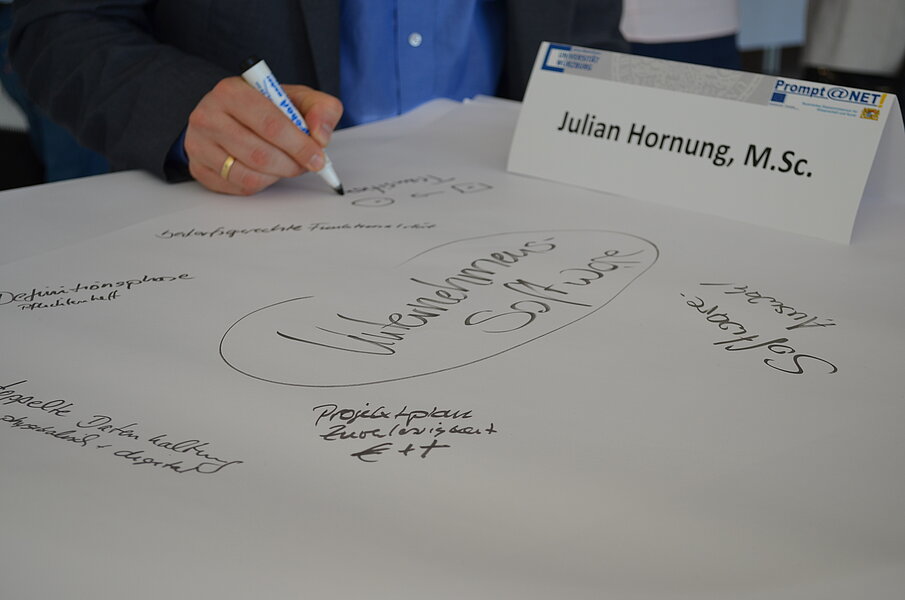 UNIVERSITÄT
WÜRZBURG
Prompt@NET!
Julian Hornung, M.Sc.
bedarfsgerechte Funktionalität
Definitionsphase
Pflichtenheft
Unternehmens-
Software
Software-
Auswahl
doppelte Datenhaltung
physikalisch + digital
Projektplan
Zuverlässigkeit
€ ++